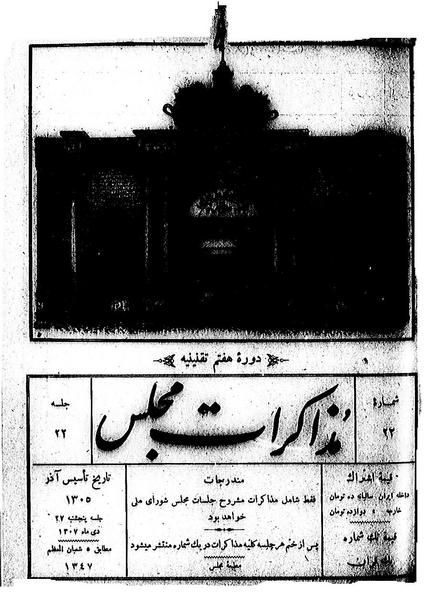 دورهٔ هفتم تقنینیه
شمارهٔ
۲۲
مذاکرات مجلس
جلسه
۲۲
قیمة اشتراك
داخله ایران سالیانه ده تومان
خارجه » دوازده تومان
قیمة تك شماره
یك قران
مندرجات
فقط شامل مذاکرات مشروح جلسات مجلس شورای ملی
خواهد بود
پس از ختم هر جلسه کلیه مذاکرات در یك شماره منتشر میشود
مطبعهٔ مجلس
تاریخ تأسیس آذر
۱۳۰۵
جلسه پنجشنبه ۲۷
دی ماه ۱۳۰۷
مطابق ۵ شعبان المعظم
۱۳۴۷